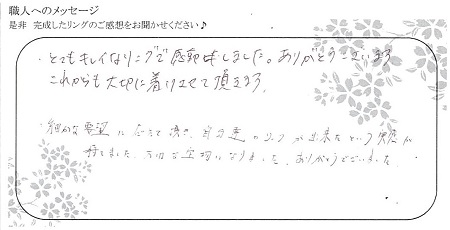 職人へのメッセージ
是非 完成したリングのご感想をお聞かせください♪
とてもキレイなリングで感動しました。ありがとうございます
これからも大切に着けさせて頂きます。
細かな要望に応えて頂き、自分達のリングが出来たという実感が
持てました。大切な宝物になりました。ありがとうございました。